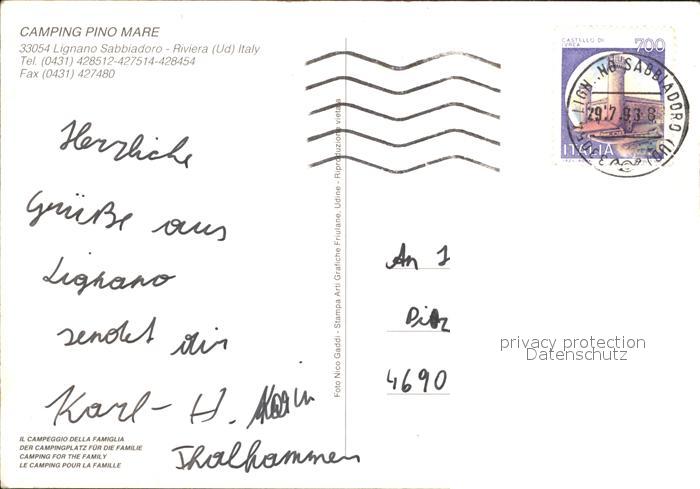 CAMPING PINO MARE
33054 Lignano Sabbiadoro - Riviera (Ud) Italy
Tel. (0431) 428512-427514-428454
Fax (0431) 427480
Herzliche
Grüße aus
Lignano
sendet dir
Karl-H.
Thalhammer
IL CAMPEGGIO DELLA FAMIGLIA
DER CAMPINGPLATZ FÜR DIE FAMILIE
CAMPING FOR THE FAMILY
LE CAMPING POUR LA FAMILLE
Foto Nico Gaddi - Stampa Arti Grafiche Friulane, Udine - Riproduzione vietata
CASTELLO DI
IVREA
700
ITALIA
SABBIADORO (UD)
29.7.93-8
An
4690
privacy protection
Datenschutz